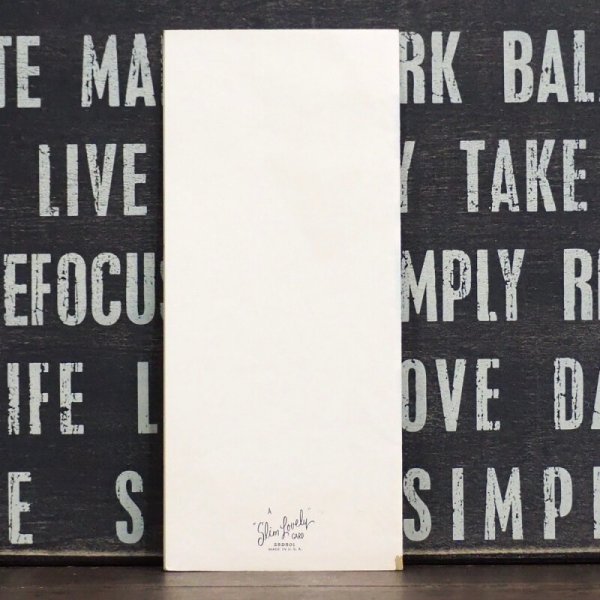 TE MA RK BAL
LIVE Y TAKE
EFOCUS MPLY R
IFE L OVE DA
E S SIMPL
A
"Slim Lovely"
CARD
MADE IN U.S.A.